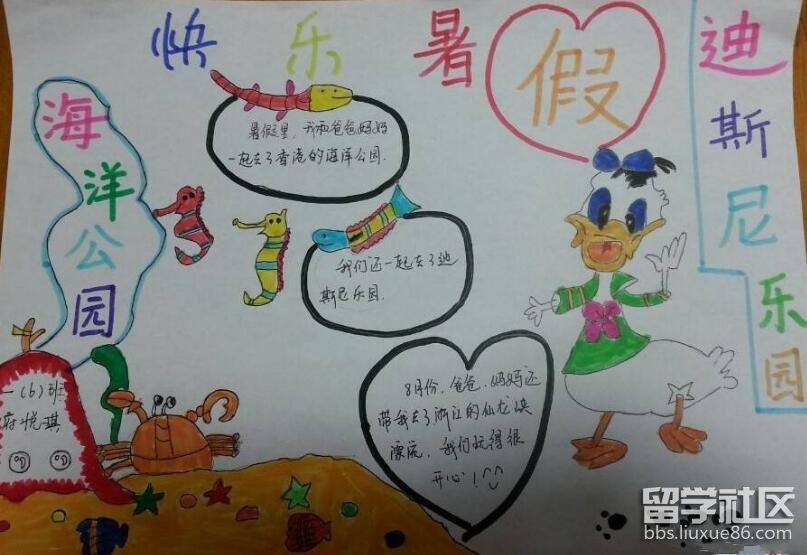 快乐暑假
海洋公园
迪斯尼乐园
暑假里,我和爸爸妈妈
一起去了香港的海洋公园.
我们还一起去了迪
斯尼乐园.
8月份,爸爸、妈妈还
带我去了浙江的仙龙峡
漂流,我们玩得很
开心!
一(6)班
府悦琪
留学社区
bbs.liuxue86.com